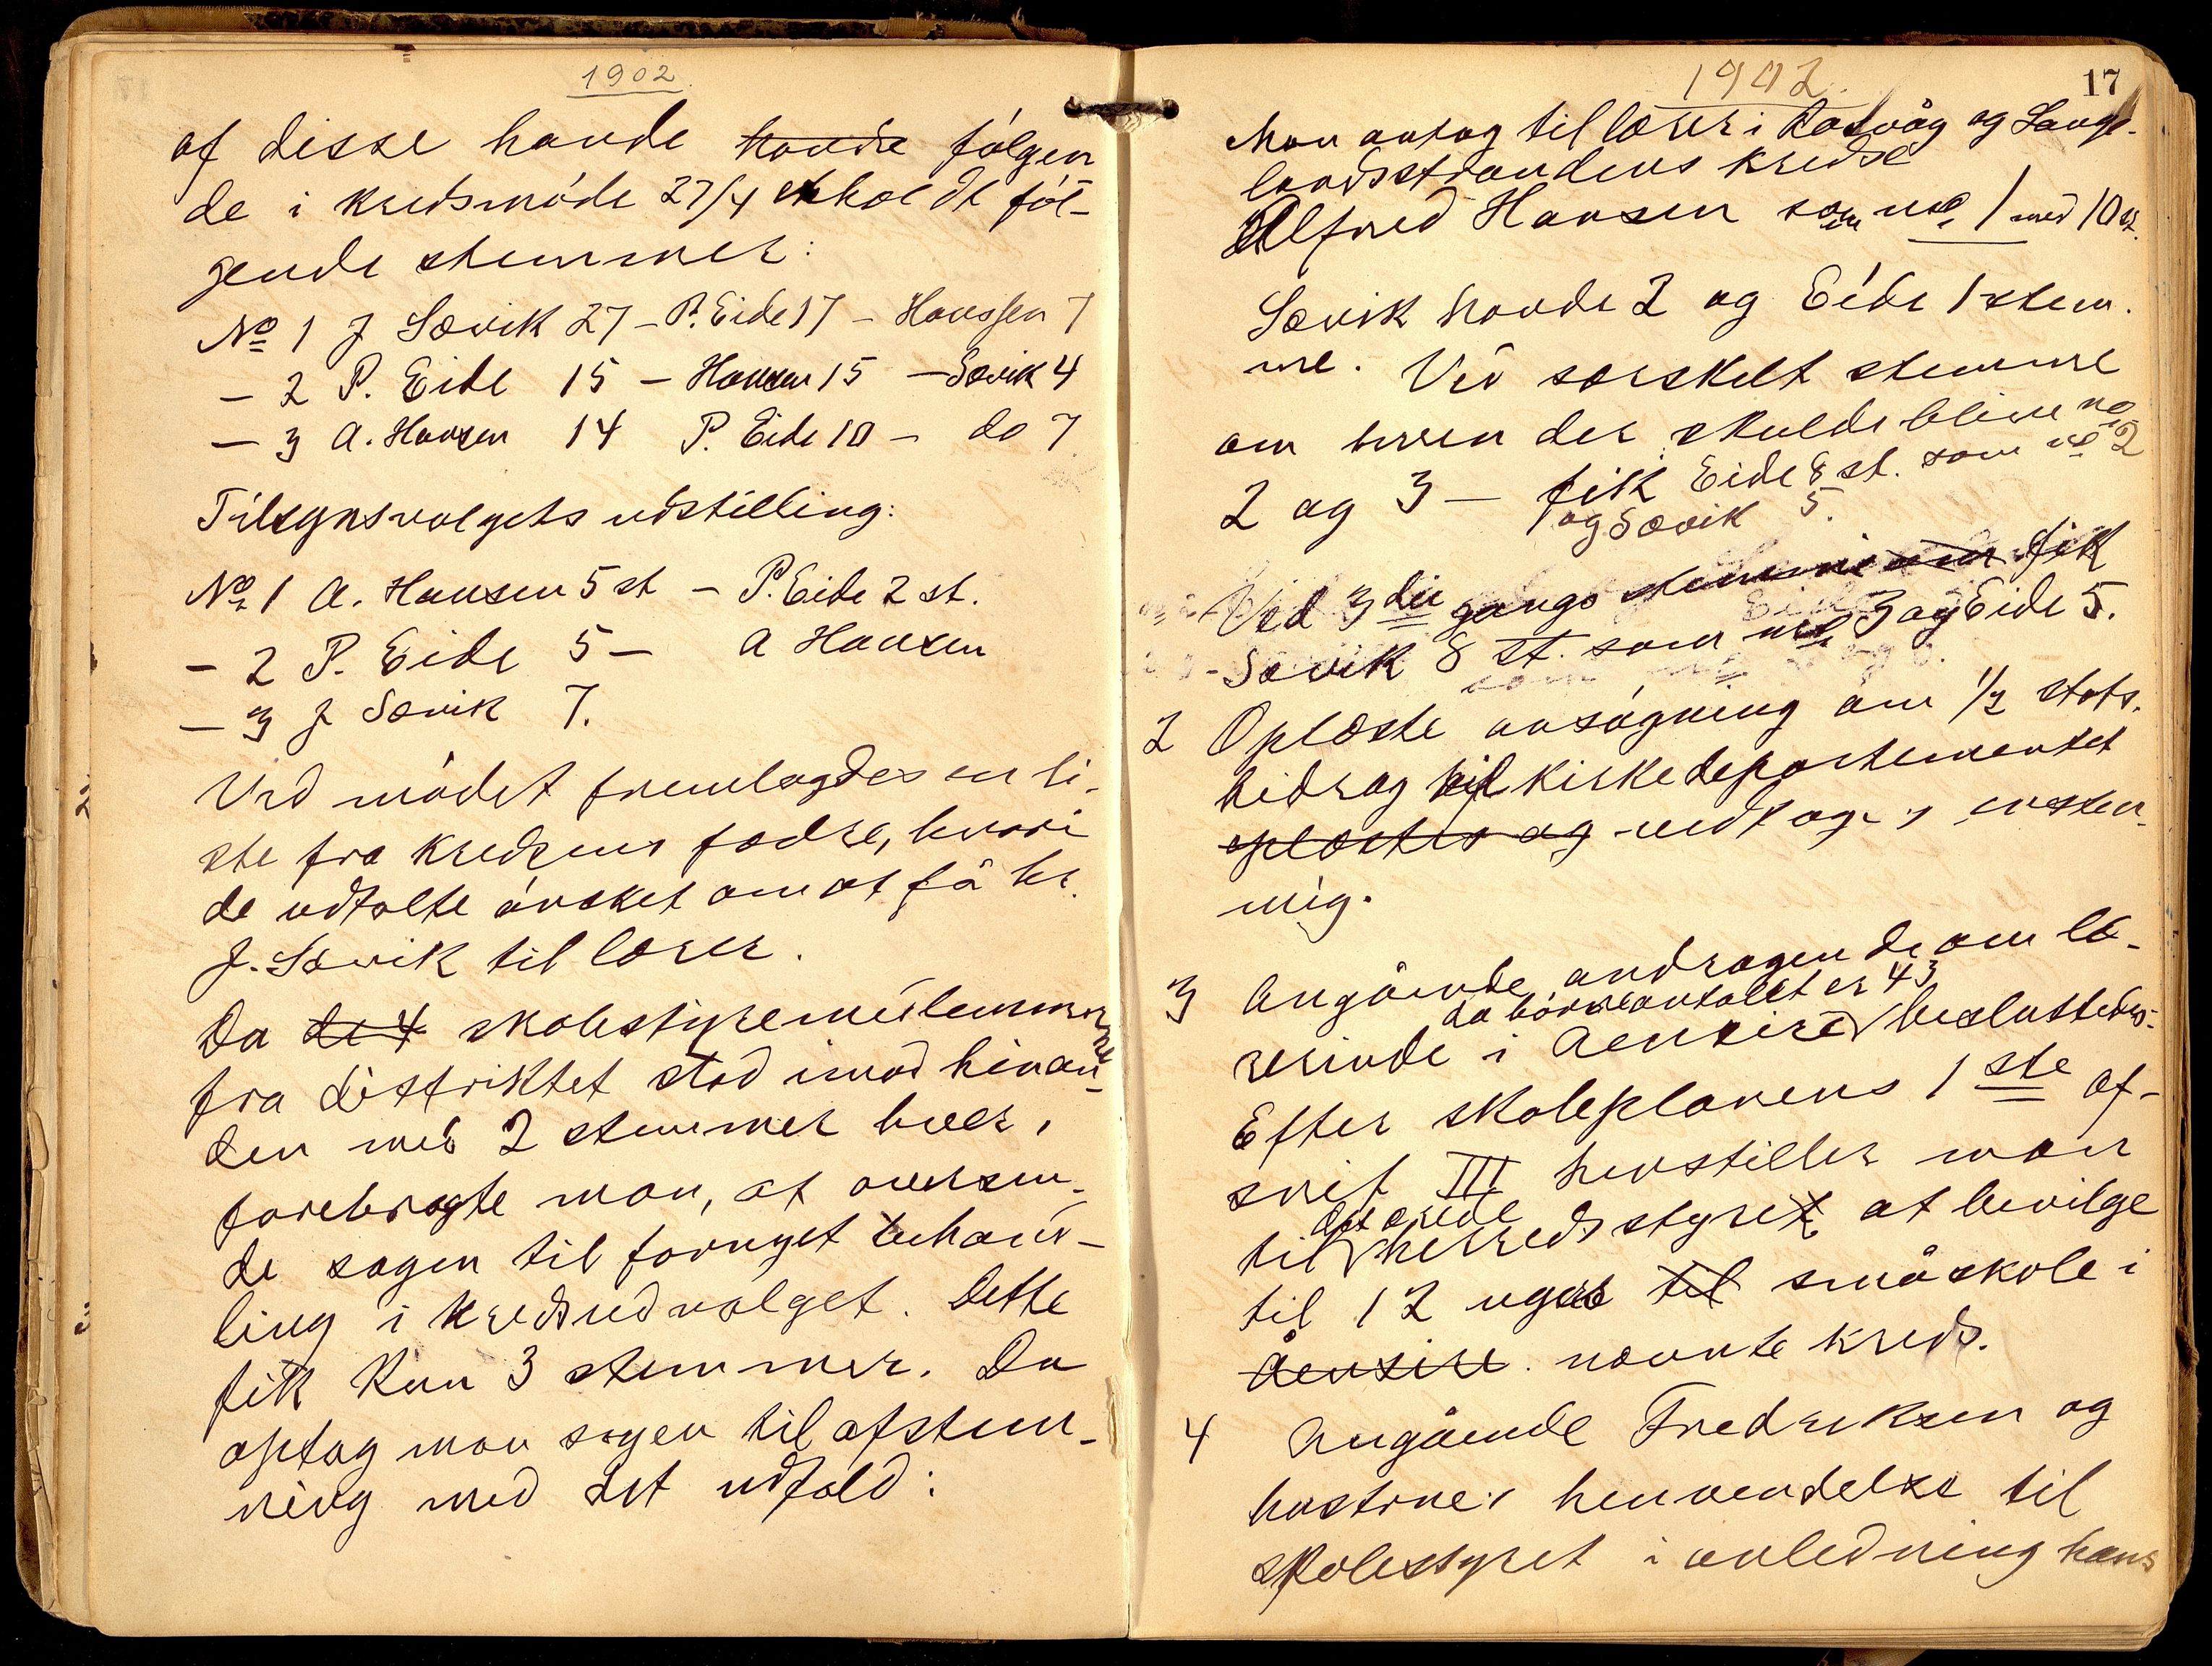 1902
af disse havde havde følgen
de i kredsmøde 27/4 erholdt føl-
gende stemmer:
No 1 J Sævik 27 - P. Eide 17 - Hanssen 7
- 2 P. Eide 15 - Hansen 15 - Sævik 4
- 3 A. Hansen 14 P. Eide 10 - do 7
Tilsynsvalgets udstilling:
No 1 A. Hansen 5 st - P. Eide 2 st.
- 2 P. Eide 5 - A Hansen
- 3 J Sævik 7.
Ved mødet fremlagdes en li-
ste fra kredsens fædre, hvori
de udtalte ønsket om at få hr.
J. Sævik til lærer.
Da de 4 skolestyremedlemmerne
fra distriktet stod imod hinan-
den med 2 stemmer hver,
forebragte man, at oversen-
de sagen til fornyet behand-
ling i kredsudvalget. Dette
fik kun 3 stemmer. Da
optog man sagen til afstem-
ning med det udfald:
1902.
17
Man antog til lærer i Ratvåg og Lange-
landsstrandens kredse
Alfred Hansen som no 1 med 10 st.
Sævik havde 2 og Eide 1 stem-
me. Ved særskelt stemme
om hvem der skulde blive no
2 og 3 - fik Eide 8 st. som no 2
og Sævik 5.
Ved 3die gangs stemme fik
Sævik 8 st. som no 3 og Eide 5.
2 Oplæste ansøgning om 1/2 stats-
bidrag til kirkedepartementet
oplæstes og vedtoges enstem-
mig.
3 Angående andragende om læ-
da børneantallet er 43
rerinde i Aensire besluttedes:
Efter skoleplanens 1ste af-
snit III henstiller man
det ærede
til herredsstyret at bevilge
til 12 uger til småskole i
Aensire. nævnte kreds.
4 Angående Fredriksen og
hustrues henvendelse til
skolestyret i anledning hans